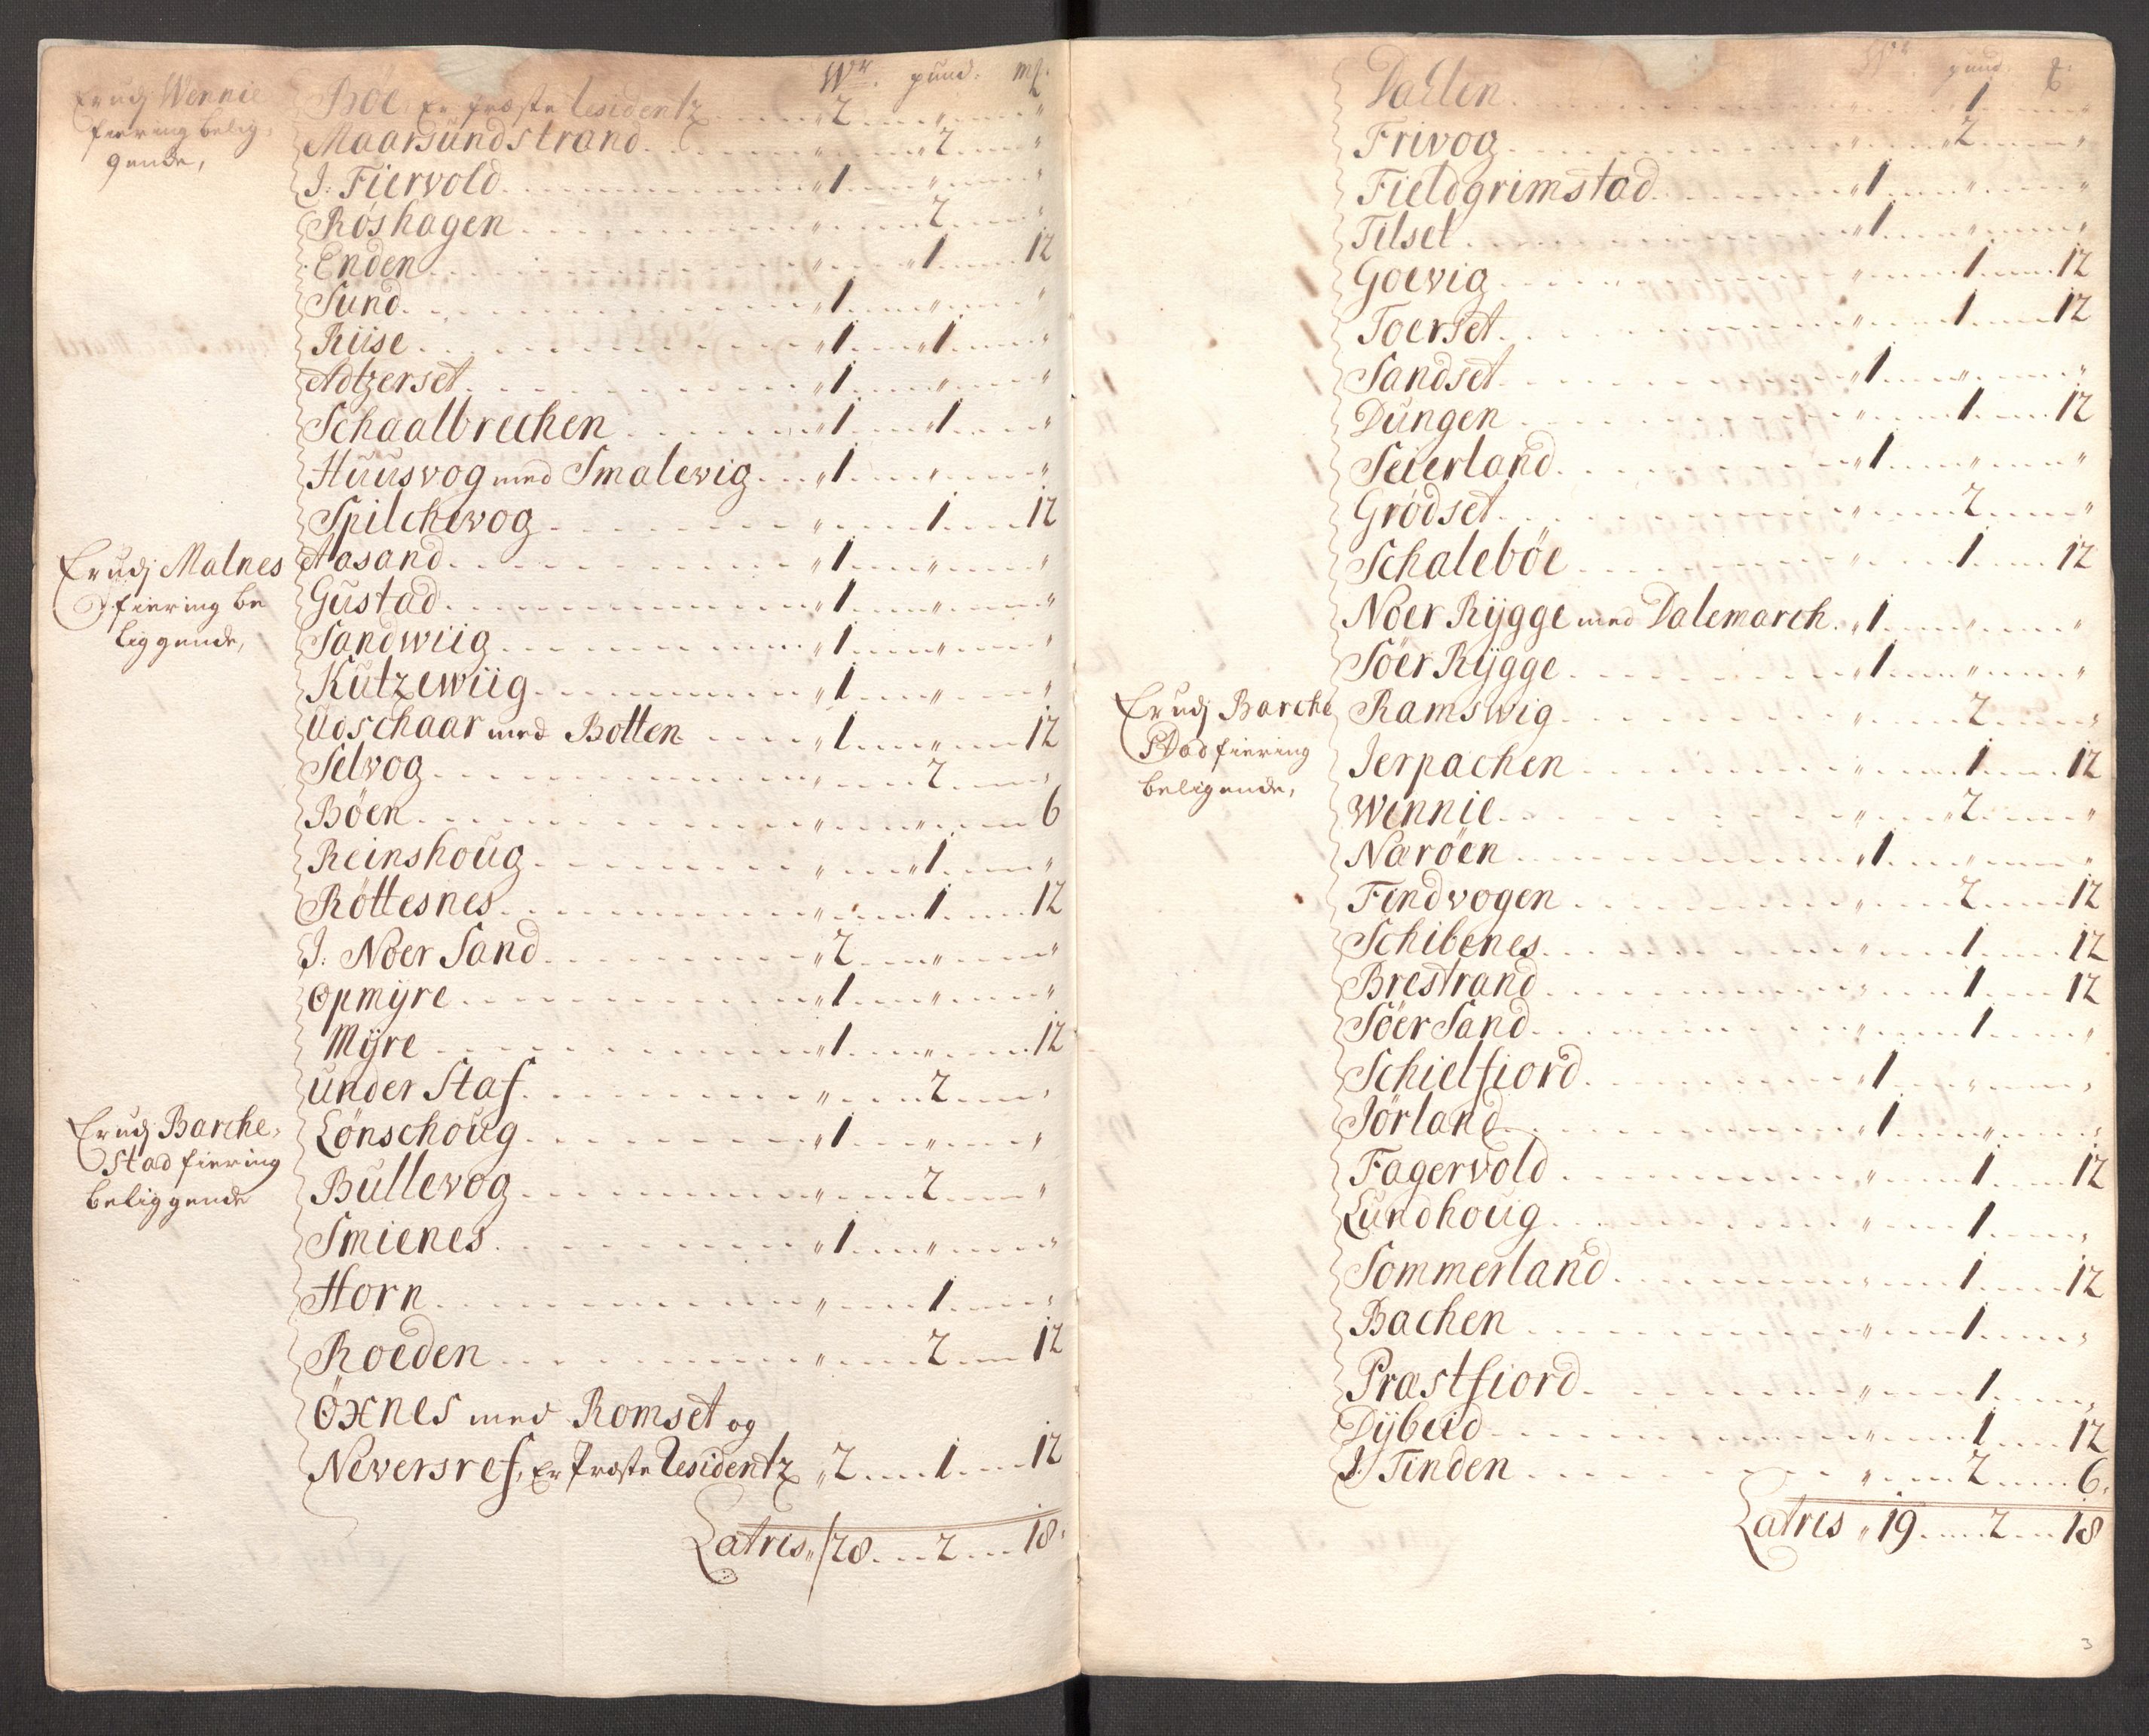 Wr. pund. mk.
Erudj Wennie
fiering belig-
gende,
Böe Er Præste Residentz 2 " "
Maarsundstrand " 2 "
J: Fiervold 1 " "
Röshagen " 2 "
Enden " 1 12
Sund 1 " "
Riise 1 1 "
Adtzerset 1 " "
Schaalbrechen 1 1 "
Huusvog med Smalevig 1 " "
Spilchevog " 1 12
Erudj Malnes
fiering be
liggende,
Aasand 1 " "
Gustad 1 " "
Sandwiig 1 " "
Kutzewiig 1 " "
Udschaar med Botten 1 " 12
Selvog " 2 "
Böen " " 6
Reinshoug " 1 "
Röttesnes " 1 12
J. Noer Sand 2 " "
Opmyre 1 " "
Myre 1 " 12
under Staf " 2 "
Erudj Barche-
stad fiering
beliggende
Lönschoug 1 " "
Bullevog " 2 "
Smienes 1 " "
Horn " 1 "
Roeden " 2 12
Öxnes med Romset og
Neversref, Er Præste Residentz 2 1 12
Latris 28 2 18
Wr. pund.
Dallen 1 "
Frivog " 2 "
Fieldgrimstad 1 " "
Tilset 1 " "
Goevig " 1 12
Toerset " 1 12
Sandset 1 " "
Dungen " 1 12
Seierland 1 " "
Grödset " 2 "
Schaleböe " 1 12
Noer Rygge med Dalemarch 1 " "
Söer Rygge 1 " "
Erudj Barche
stad fiering
beligende,
Ramswig " 2 "
Jerpachen " 1 12
Wennie " 2 "
Naröen 1 " "
Findvogen " 2 12
Schibenes " 1 12
Brestrand " 1 12
Söer Sand " 1 "
Schielfiord 1 " "
Jörland 1 " "
Fagervold " 1 12
Lundhoug " 1 "
Sommerland " 1 12
Bachen " 1 "
Præstfiord " 1 "
Dybeid " 1 12
J. Tinden " 2 6
Latris 19 2 18
3